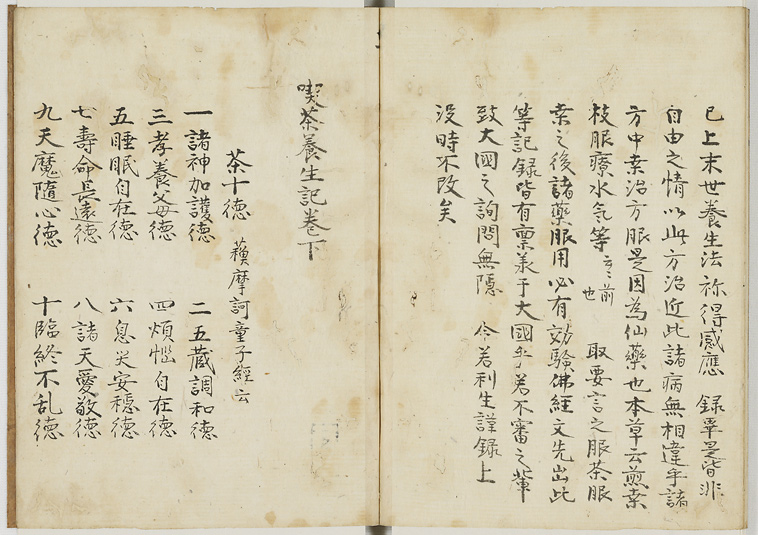 已上末世養生法祢得感應　録畢是皆非
自由之情以此方治近比諸病無相違乎諸
方中桒治方服是因為仙藥也本草云煎桒
枝服療水氣等云云前也　取要言之服茶服
桒之後諸藥服用必有効驗佛經文先出此
等記録皆有稟義于大國乎若不審之輩
致大國之詢問無隠　今若利生謹録上
没時不改矣
喫茶養生記巻下
茶十徳　藾摩訶童子經云
一諸神加護徳　二五蔵調和徳
三孝養父母徳　四煩悩自在徳
五睡眠自在徳　六息災安穏徳
七壽命長遠徳　八諸天愛敬徳
九天魔隨心徳　十臨終不乱徳